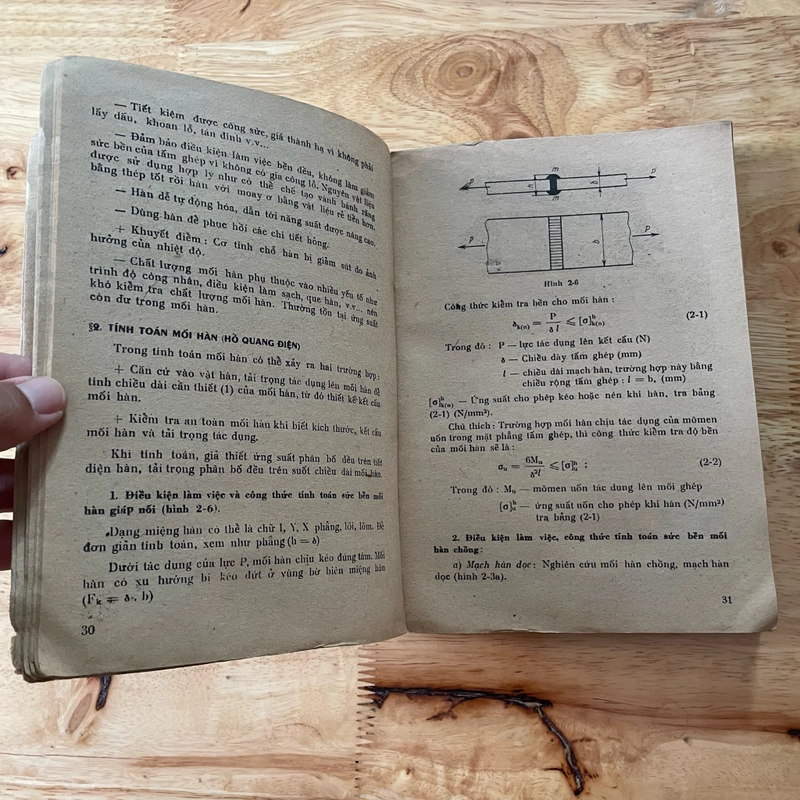 — Tiết kiệm được công sức, giá thành hạ vì không phải
lấy dấu, khoan lỗ, tán đinh v.v...
— Đảm bảo điều kiện làm việc bền đều, không làm giảm
sức bền của tấm ghép vì không có gia công lỗ. Nguyên vật liệu
được sử dụng hợp lý như có thể chế tạo vành bánh răng
bằng thép tốt rồi hàn với moay ơ bằng vật liệu rẻ tiền hơn.
— Hàn dễ tự động hóa, dẫn tới năng suất được nâng cao.
— Dùng hàn để phục hồi các chi tiết hỏng.
+ Khuyết điểm : Cơ tính chỗ hàn bị giảm sút do ảnh
hưởng của nhiệt độ.
— Chất lượng mối hàn phụ thuộc vào nhiều yếu tố như
trình độ công nhân, điều kiện làm sạch, que hàn, v.v... nên
khó kiểm tra chất lượng mối hàn. Thường tồn tại ứng suất
còn dư trong mối hàn.
§2. TÍNH TOÁN MỐI HÀN (HỒ QUANG ĐIỆN)
Trong tính toán mối hàn có thể xảy ra hai trường hợp :
+ Căn cứ vào vật hàn, tải trọng tác dụng lên mối hàn để
tính chiều dài cần thiết (1) của mối hàn, từ đó thiết kế kết cấu
mối hàn.
+ Kiểm tra an toàn mối hàn khi biết kích thước, kết cấu
mối hàn và tải trọng tác dụng.
Khi tính toán, giả thiết ứng suất phân bố đều trên tiết
diện hàn, tải trọng phân bố đều trên suốt chiều dài mối hàn.
1. Điều kiện làm việc và công thức tính toán sức bền mối
hàn giáp nối (hình 2-6).
Dạng miệng hàn có thể là chữ I, Y, X phẳng, lồi, lõm. Để
đơn giản tính toán, xem như phẳng (h = δ)
Dưới tác dụng của lực P, mối hàn chịu kéo đúng tâm. Mối
hàn có xu hướng bị kéo đứt ở vùng bờ biên miệng hàn
(Fₖ = δ. b)
30
P m h m δ P
P b P
Hình 2-6
Công thức kiểm tra bền cho mối hàn :
δk(n) = P / δ l ⩽ [σ]ʰk(n) (2-1)
Trong đó : P — lực tác dụng lên kết cấu (N)
δ — Chiều dày tấm ghép (mm)
l — chiều dài mạch hàn, trường hợp này bằng
chiều rộng tấm ghép : l = b, (mm)
[σ]ʰk(n) — Ứng suất cho phép kéo hoặc nén khi hàn, tra bảng
(2-1) (N/mm²).
Chú thích : Trường hợp mối hàn chịu tác dụng của mômen
uốn trong mặt phẳng tấm ghép, thì công thức kiểm tra độ bền
của mối hàn sẽ là :
σu = 6Mu / δ²l ⩽ [σ]ʰu ; (2-2)
Trong đó : Mu — mòmen uốn tác dụng lên mối ghép
[σ]ʰu — ứng suất uốn cho phép khi hàn (N/mm²)
tra bảng (2-1)
2. Điều kiện làm việc, công thức tính toán sức bền mối
hàn chồng :
a) Mạch hàn dọc : Nghiên cứu mối hàn chồng, mạch hàn
dọc (hình 2-3a).
31